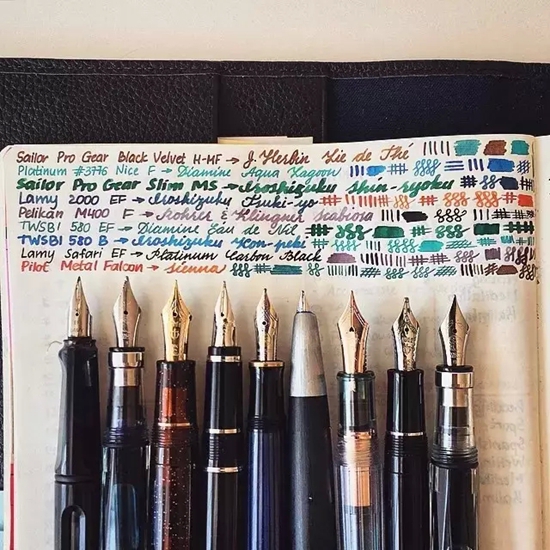 Sailor Pro Gear Black Velvet H-MF → J. Herbin Lie de Thé
Platinum #3776 Nice F → Diamine Aqua Lagoon
Sailor Pro Gear Slim MS → Iroshizuku shin-ryoku
Lamy 2000 EF → Iroshizuku Tsuki-yo
Pelikan M400 F → Rohrer & Klingner Scabiosa
TWSBI 580 EF → Diamine Eau de Nil
TWSBI 580 B → Iroshizuku Kon-peki
Lamy Safari EF → Platinum Carbon Black
Pilot Metal Falcon → sienna